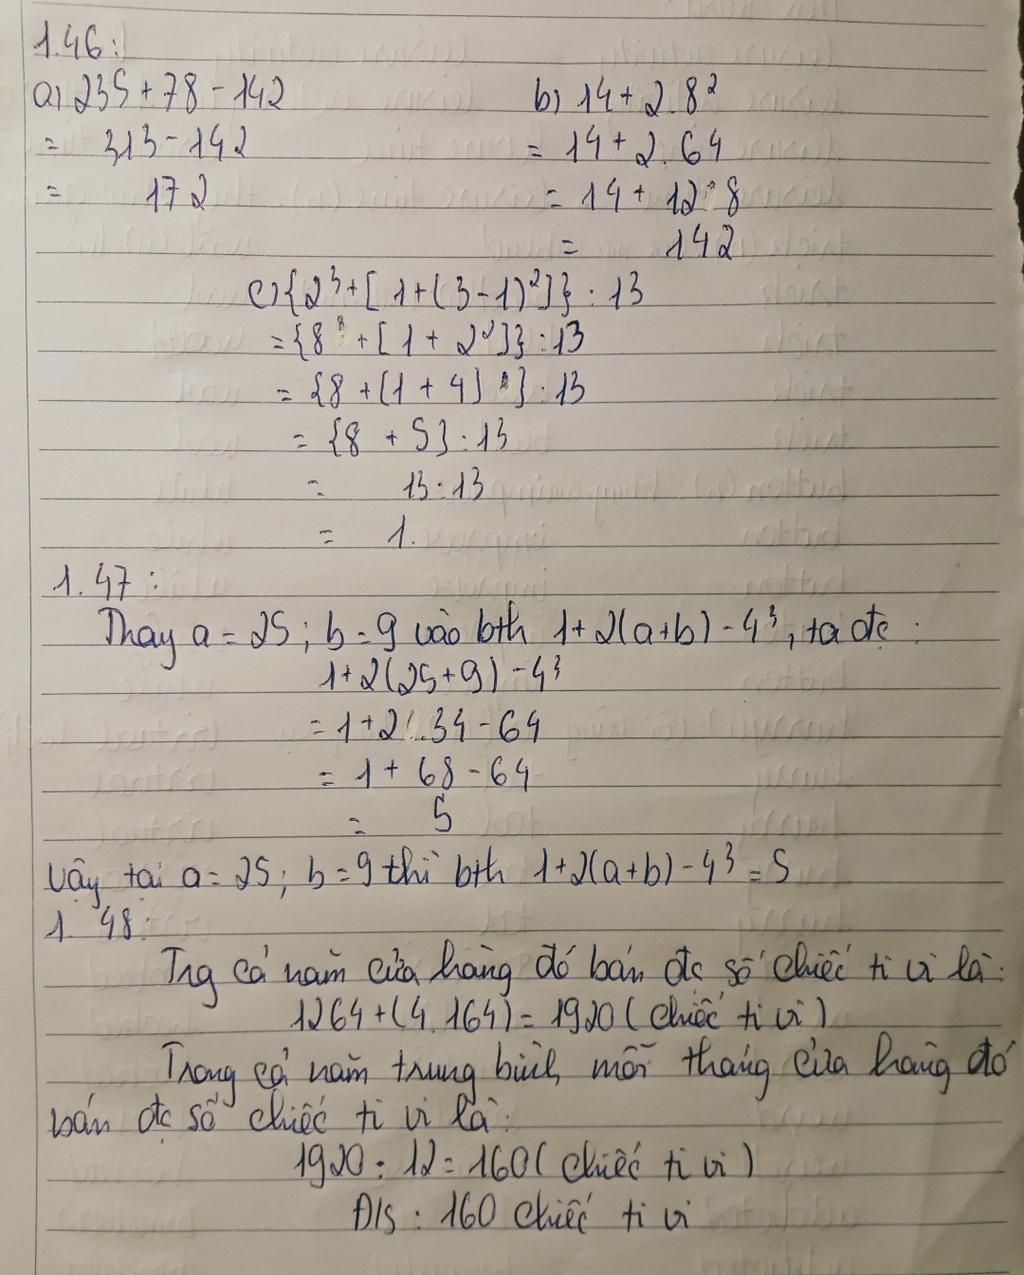 1.46:
a) 235 + 78 - 142
= 313 - 142
= 172
b) 14 + 2.8²
= 14 + 2.64
= 14 + 128
= 142
c) {2³ + [1 + (3-1)²]} : 13
= {8 + [1 + 2²]} : 13
= {8 + [1 + 4]} : 13
= {8 + 5} : 13
= 13 : 13
= 1.
1.47:
Thay a = 25; b = 9 vào bth 1+2(a+b) - 4³, ta đc:
1+2(25+9) - 4³
= 1+2.34 - 64
= 1 + 68 - 64
= 5
Vậy tại a = 25; b = 9 thì bth 1+2(a+b) - 4³ = 5
1.48:
Trg cả năm cửa hàng đó bán đc số chiếc ti vi là:
1264 + (4.164) = 1920 (chiếc ti vi)
Trong cả năm trung bình, mỗi tháng cửa hàng đó
bán đc số chiếc ti vi là:
1920 : 12 = 160 (chiếc ti vi)
Đ/s: 160 chiếc ti vi